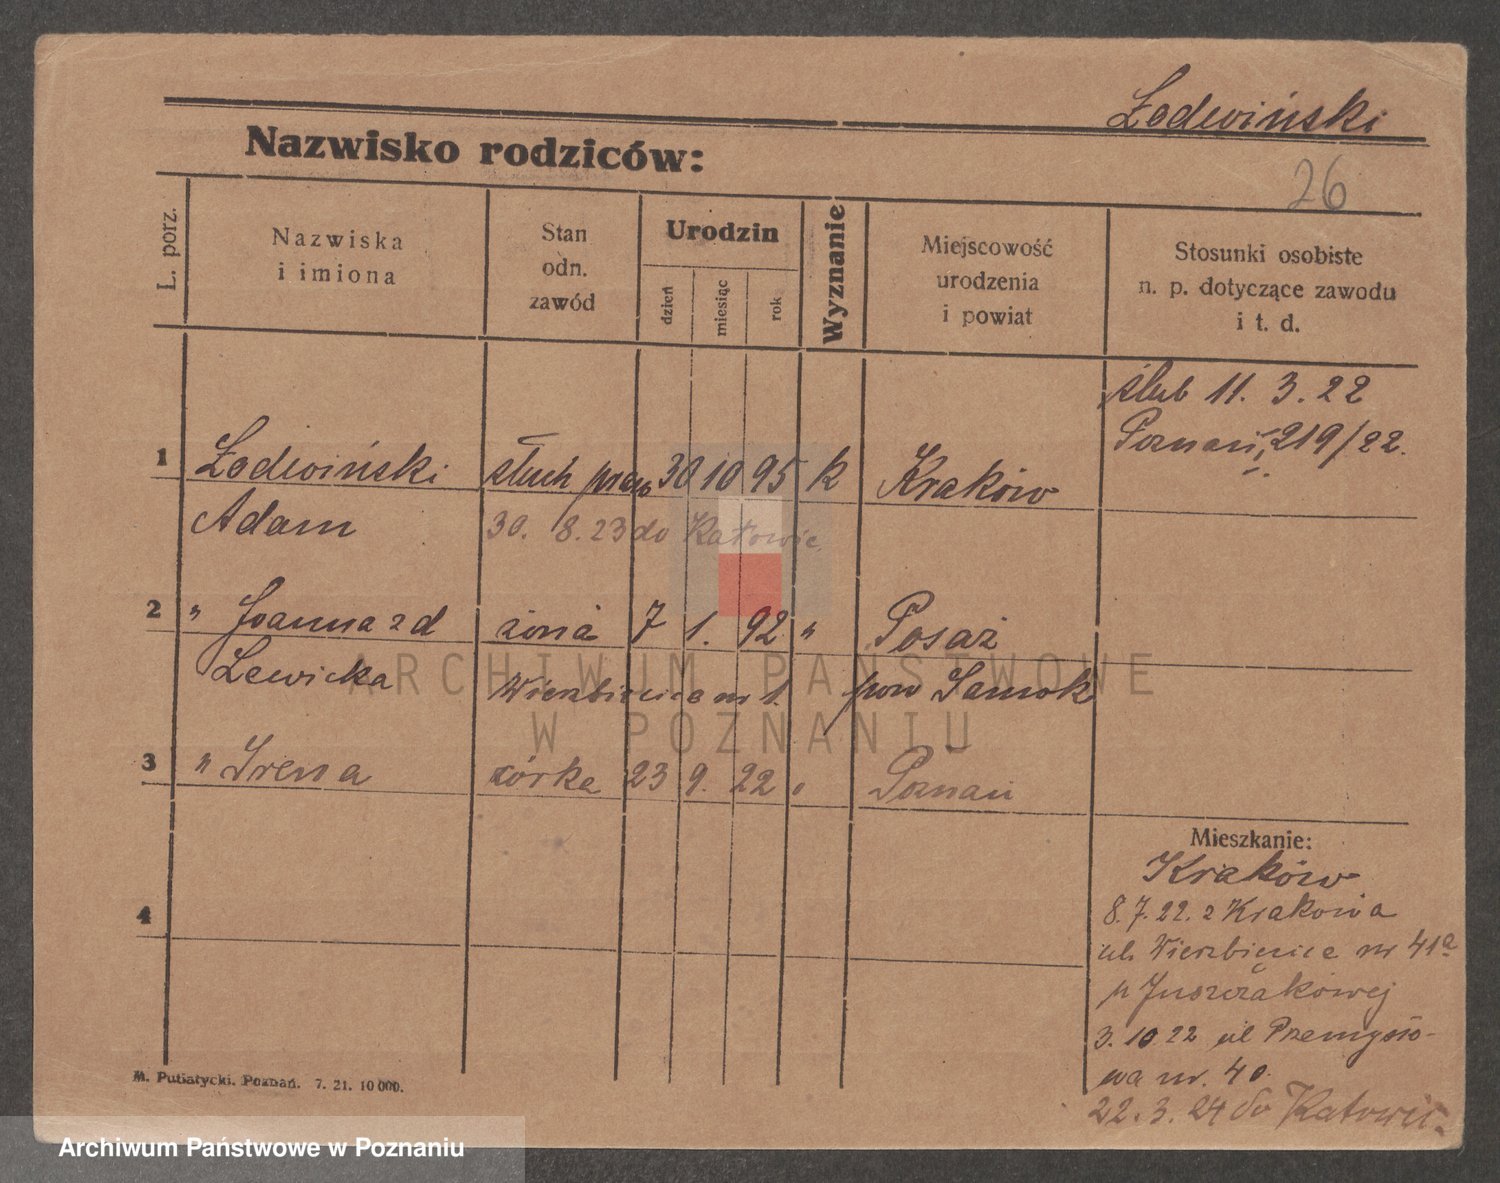 Żodwiński
Nazwisko rodziców:
26
L. porz.
Nazwiska
i imiona
Stan
odn.
zawód
Urodzin
dzień
miesiąc
rok
Wyznanie
Miejscowość
urodzenia
i powiat
Stosunki osobiste
n. p. dotyczące zawodu
i t. d.
ślub 11. 3. 22
Poznań, 219/22.
1 słuch praw 30 10 95 k Kraków
Adam 30. 8. 23 do Katowic
2 " Joanna z d żona 7 1. 92 " Posaż
Lewicka Wierzbięcice nr 1. pow Sanok
3 " Irena córka 23 9. 22 " Poznań
4
Mieszkanie:
Kraków
8. 7. 22. z Krakowa
ul. Wierzbięcice nr 41a
p Juszczakowej
3. 10 22 ul Przemysło-
wa nr. 40.
22. 3. 24 do Katowic.
M. Putiatycki. Poznań. 7. 21. 10 000.
ARCHIWUM PAŃSTWOWE
W POZNANIU
Archiwum Państwowe w Poznaniu